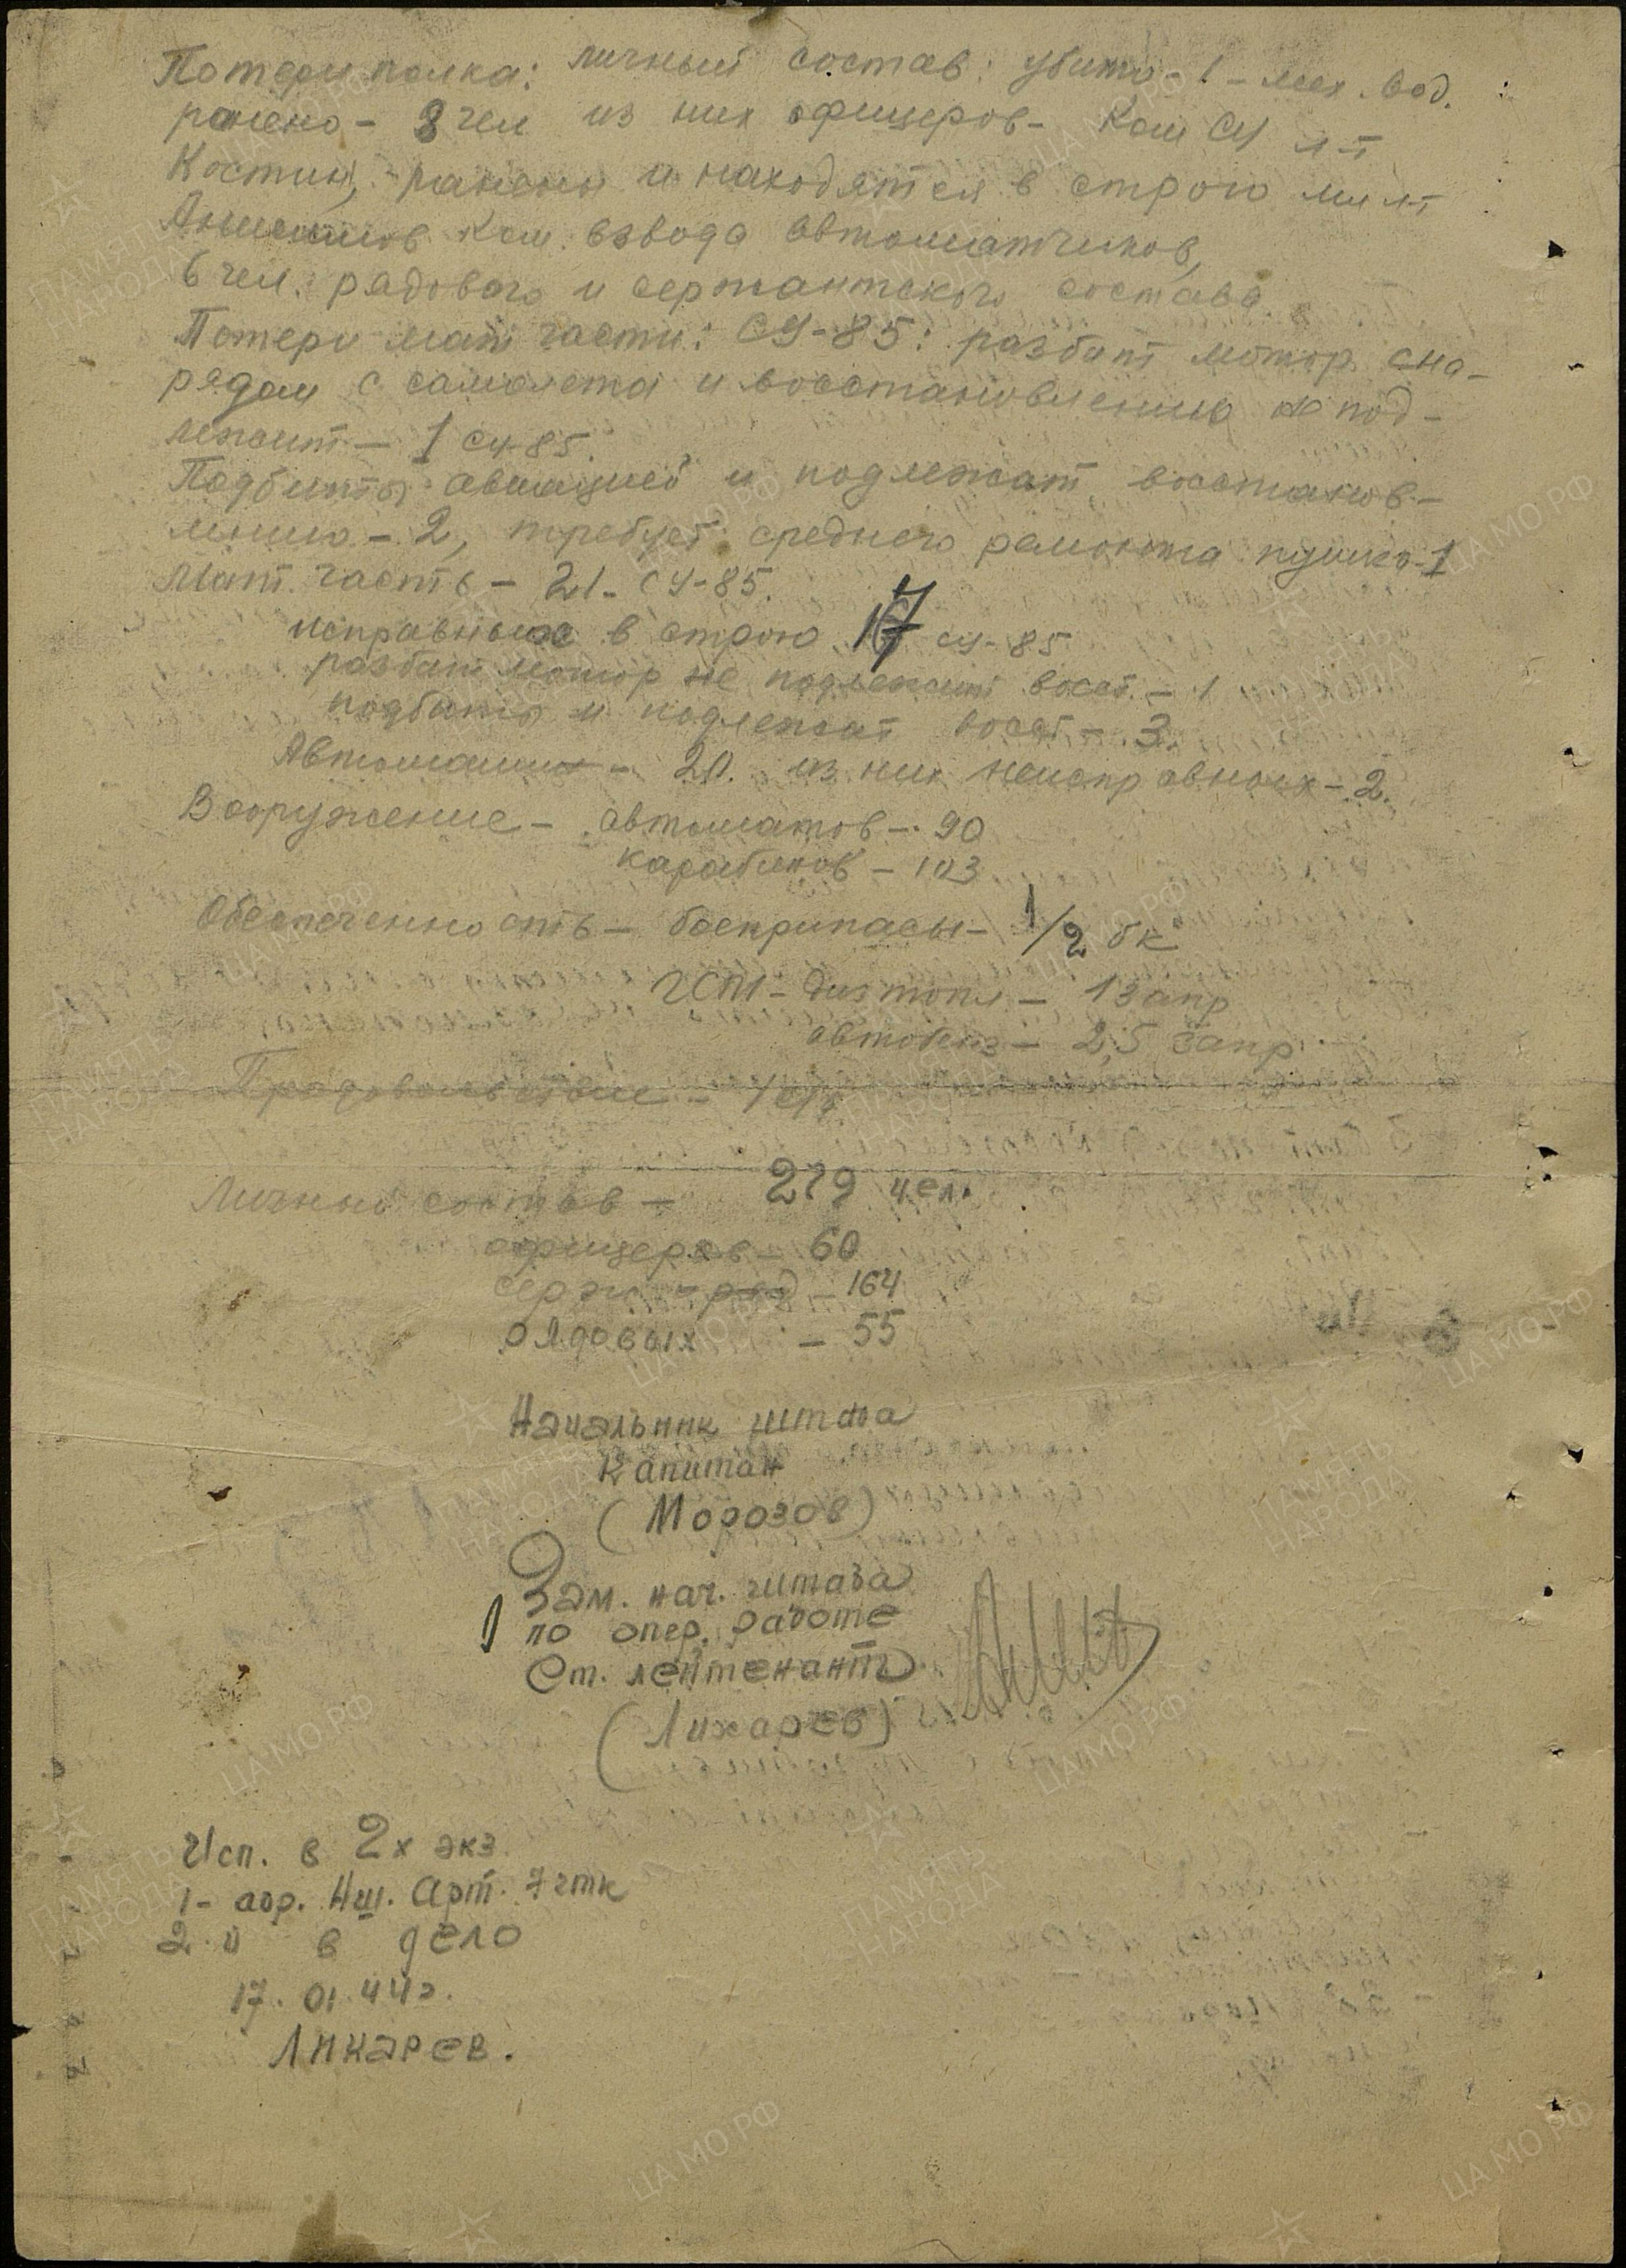 Потери полка: личный состав: убито - 1 - мех. вод.
ранено - 8 чел из них офицеров - Ком СУ л-т
Костин, ранены и находятся в строю мл л-т
ком. взвода автоматчиков,
6 чел. рядового и сержантского состава
Потери мат части: СУ-85: разбит мотор сна-
рядом с самолета и восстановлению не под-
лежит - 1 су-85.
Подбиты авиацией и подлежат восстанов-
лению - 2, требует среднего ремонта пушка - 1
Мат. часть - 21 - СУ-85.
исправных в строю 17 су-85
разбит мотор не подлежит восст. - 1
подбиты и подлежат восст - 3.
Автомашин - 20. из них неисправных - 2.
Вооружение - автоматов - 90
карабинов - 103
Обеспеченность - боеприпасы - 1/2 бк
ГСМ - диз топл - 1 запр
автобенз - 2,5 запр
Продовольствие -
Личный состав - 279 чел.
офицеров - 60
серж - ряд - 164
рядовых - 55
Начальник штаба
Капитан
(Морозов)
Зам. нач. штаба
по опер. работе
Ст. лейтенант
(Лихарев)
Исп. в 2х экз.
1 - адр. Нш. Арт. 7 гтк
2 - й в дело
17.01.44г.
Лихарев.
ПАМЯТЬ НАРОДА
ЦА МО РФ